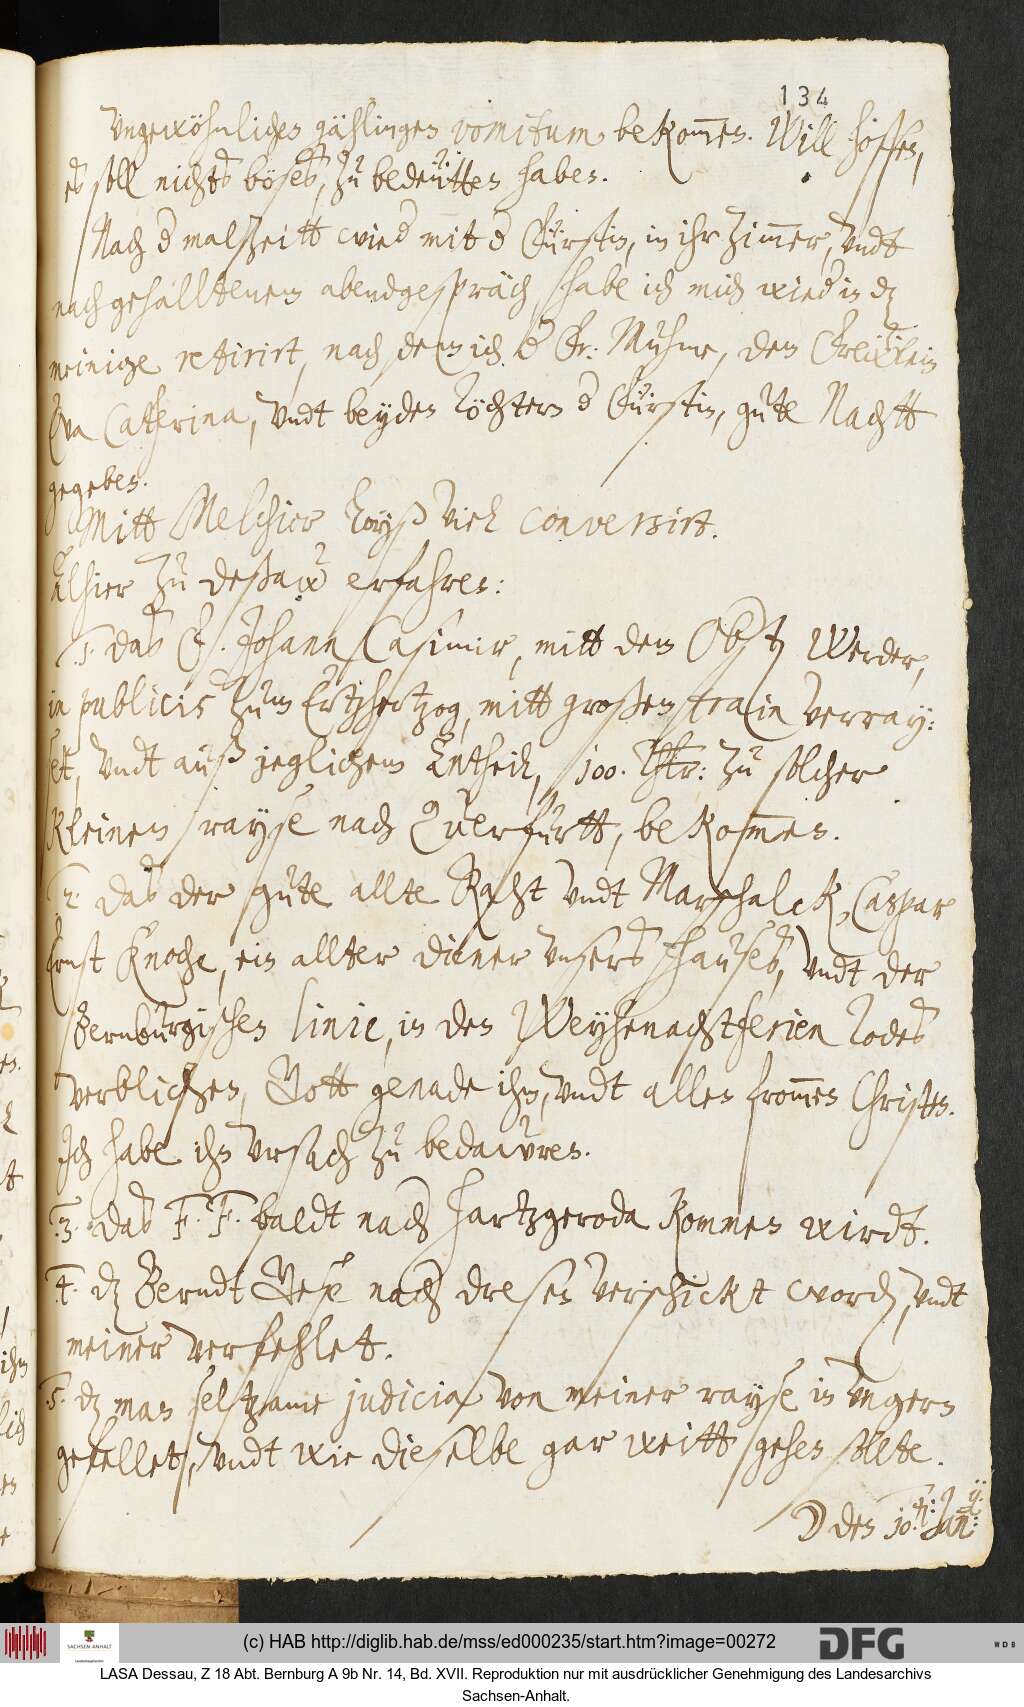 134
ungewöhnliches gählinges vomitum bekom̄en. Will hoffen,
es soll nichts böses, zu bedeütten haben.
Nach d malzeitt wied mit d Fürstin, in ihr Zim̄er, undt
nach gehalltenem abendgespräch habe ich mich wied in dz
meinige retirirt, nach dem ich d Fr: Muhme, dem Frewlein
Eva Catherina, undt beyden Töchtern d Fürstin, gute Nachtt
gegeben.
Mitt Melchior Loyß viel conversirt.
Alhier zu Deßaw erfahren:
1. das F. Johann Casimir, mitt dem Obst. Werder,
in publicis zum Ertzhertzog, mitt großem train verray:
set, undt auß jeglichem Antheil, 100. Thlr: zu solcher
kleinen rayse nach Querfurtt, bekom̄en.
2. das der gute allte Raht undt Marschalck, Caspar
Ernst Knoche, ein allter diener unsers hauses, undt der
Bernburgischen linie, in den Weyhenachtferien Todes
verblichen, Gott genade ihm, undt allen from̄en Christen.
Ich habe ihn ursach zu bedawren.
3. das F. F. baldt nach Hartzgeroda kommen wirdt.
4. dz Berndt Geße nach Dresen verschickt word, undt
meiner verfehlet.
5. dz man seltzame judicia von meiner rayse in Ungern
gefellet, undt wie dieselbe gar weitt gehen sollte.
☽ den 10. Jan:
(c) HAB http://diglib.hab.de/mss/ed000235/start.htm?image=00272
DFG
WDB
SACHSEN-ANHALT
LASA Dessau, Z 18 Abt. Bernburg A 9b Nr. 14, Bd. XVII. Reproduktion nur mit ausdrücklicher Genehmigung des Landesarchivs
Sachsen-Anhalt.